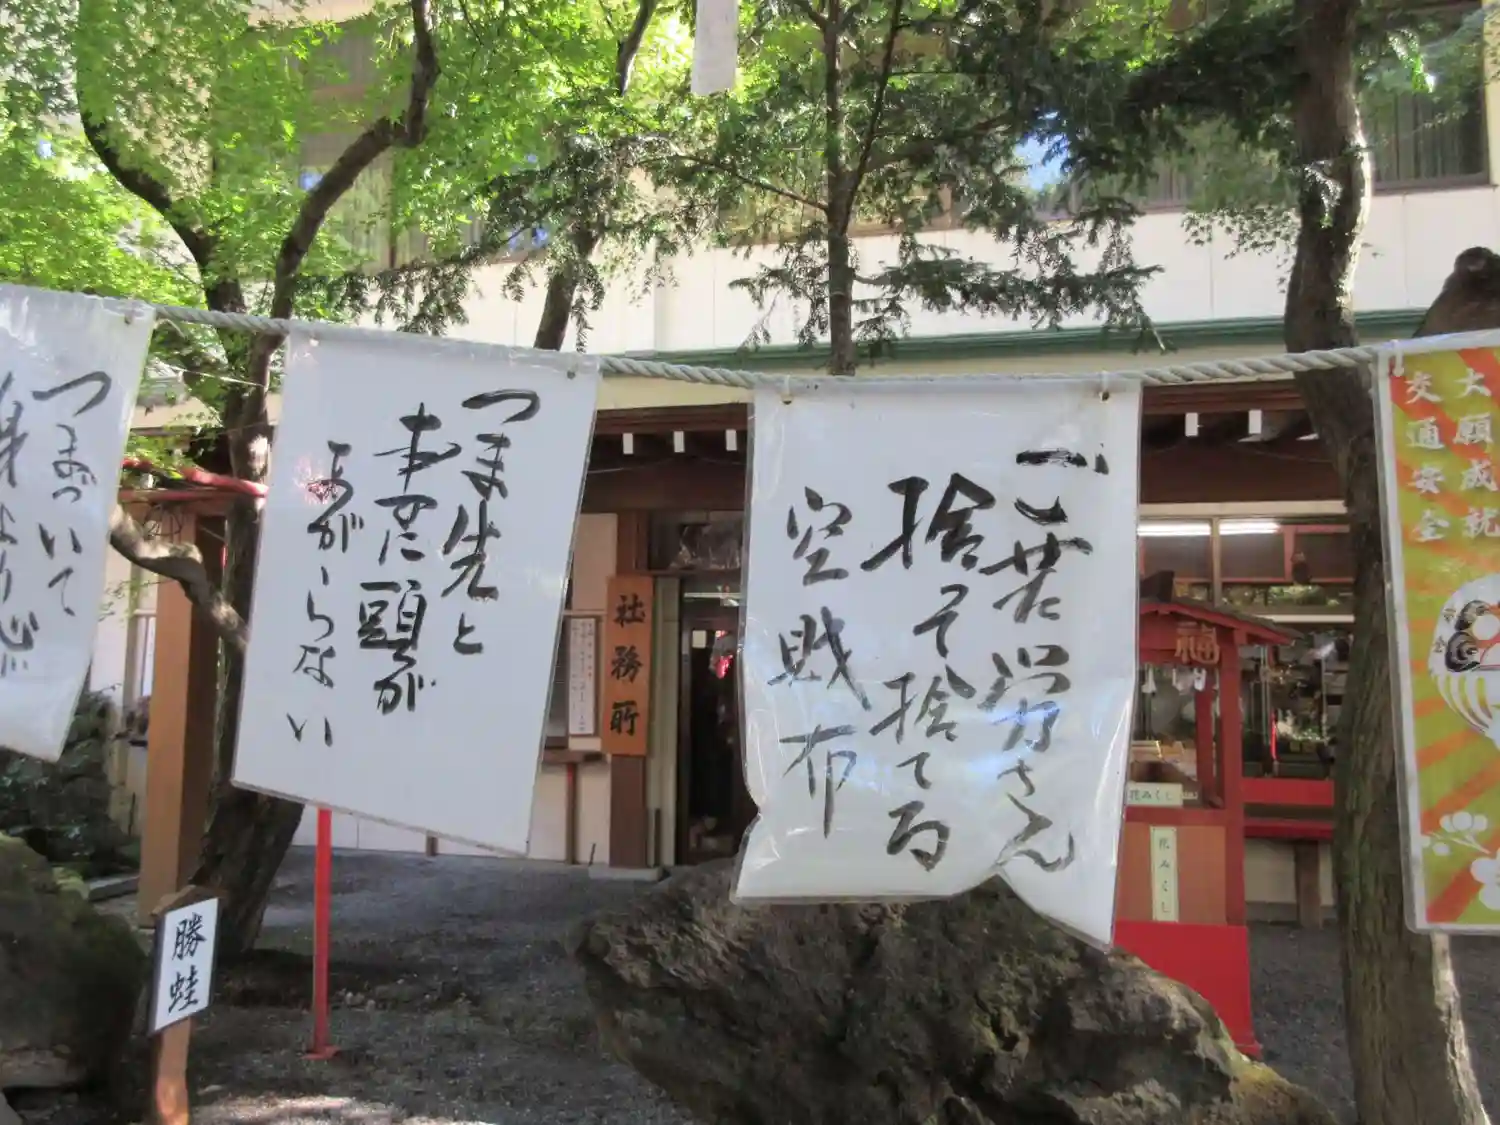 大願成就
交通安全
ご苦労さん
捨て捨てる
空財布
つま先と
まだ頭が
あがらない
つまづいて
身より心が
社務所
福
花みくじ
花みくじ
勝蛙